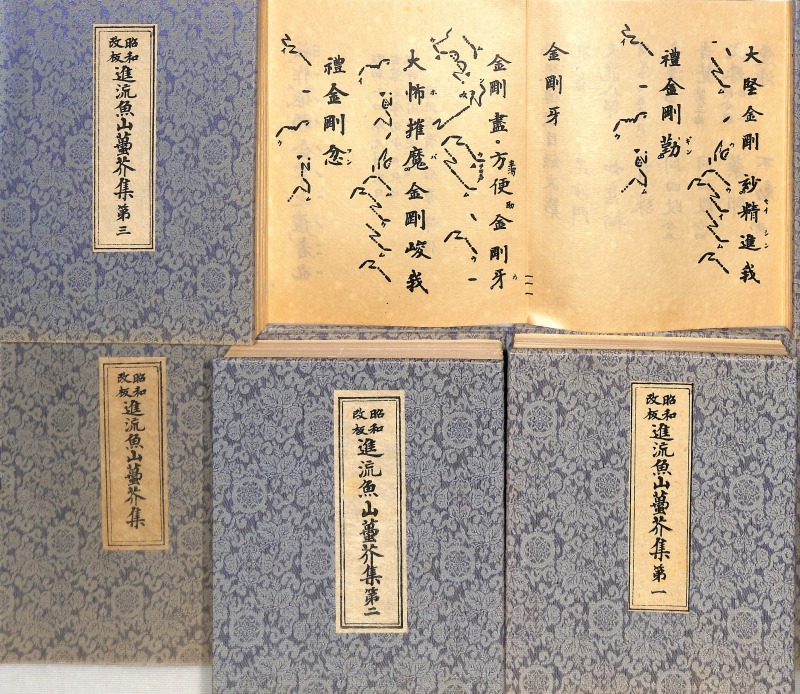 大堅金剛玅精進我
セイ シン
禮金剛勤
ギン
金剛牙
金剛盡・方便金剛牙
大怖摧魔金剛峻我
禮金剛忿
昭和
改板
進流魚山蠆芥集 第三
昭和
改板
進流魚山蠆芥集 第一
昭和
改板
進流魚山蠆芥集 第二
昭和
改板
進流魚山蠆芥集